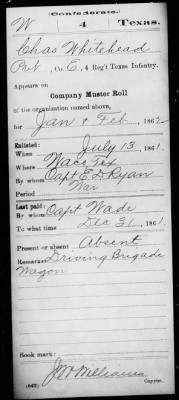 (Confederate.)
W 4 Texas.
Chas Whitehead
Pvt, Co. E, 4 Reg't Texas Infantry.
Appears on
Company Muster Roll
of the organization named above,
for Jan & Feb, 1862
Enlisted:
When July 13, 1861.
Where Waco Tex
By whom Capt E D Ryan
Period War
Last paid:
By whom Capt Wade
To what time Dec 31, 1861.
Present or absent Absent
Remarks: Driving Brigade
Wagon
Book mark:
J W Williams
(642) Copyist.